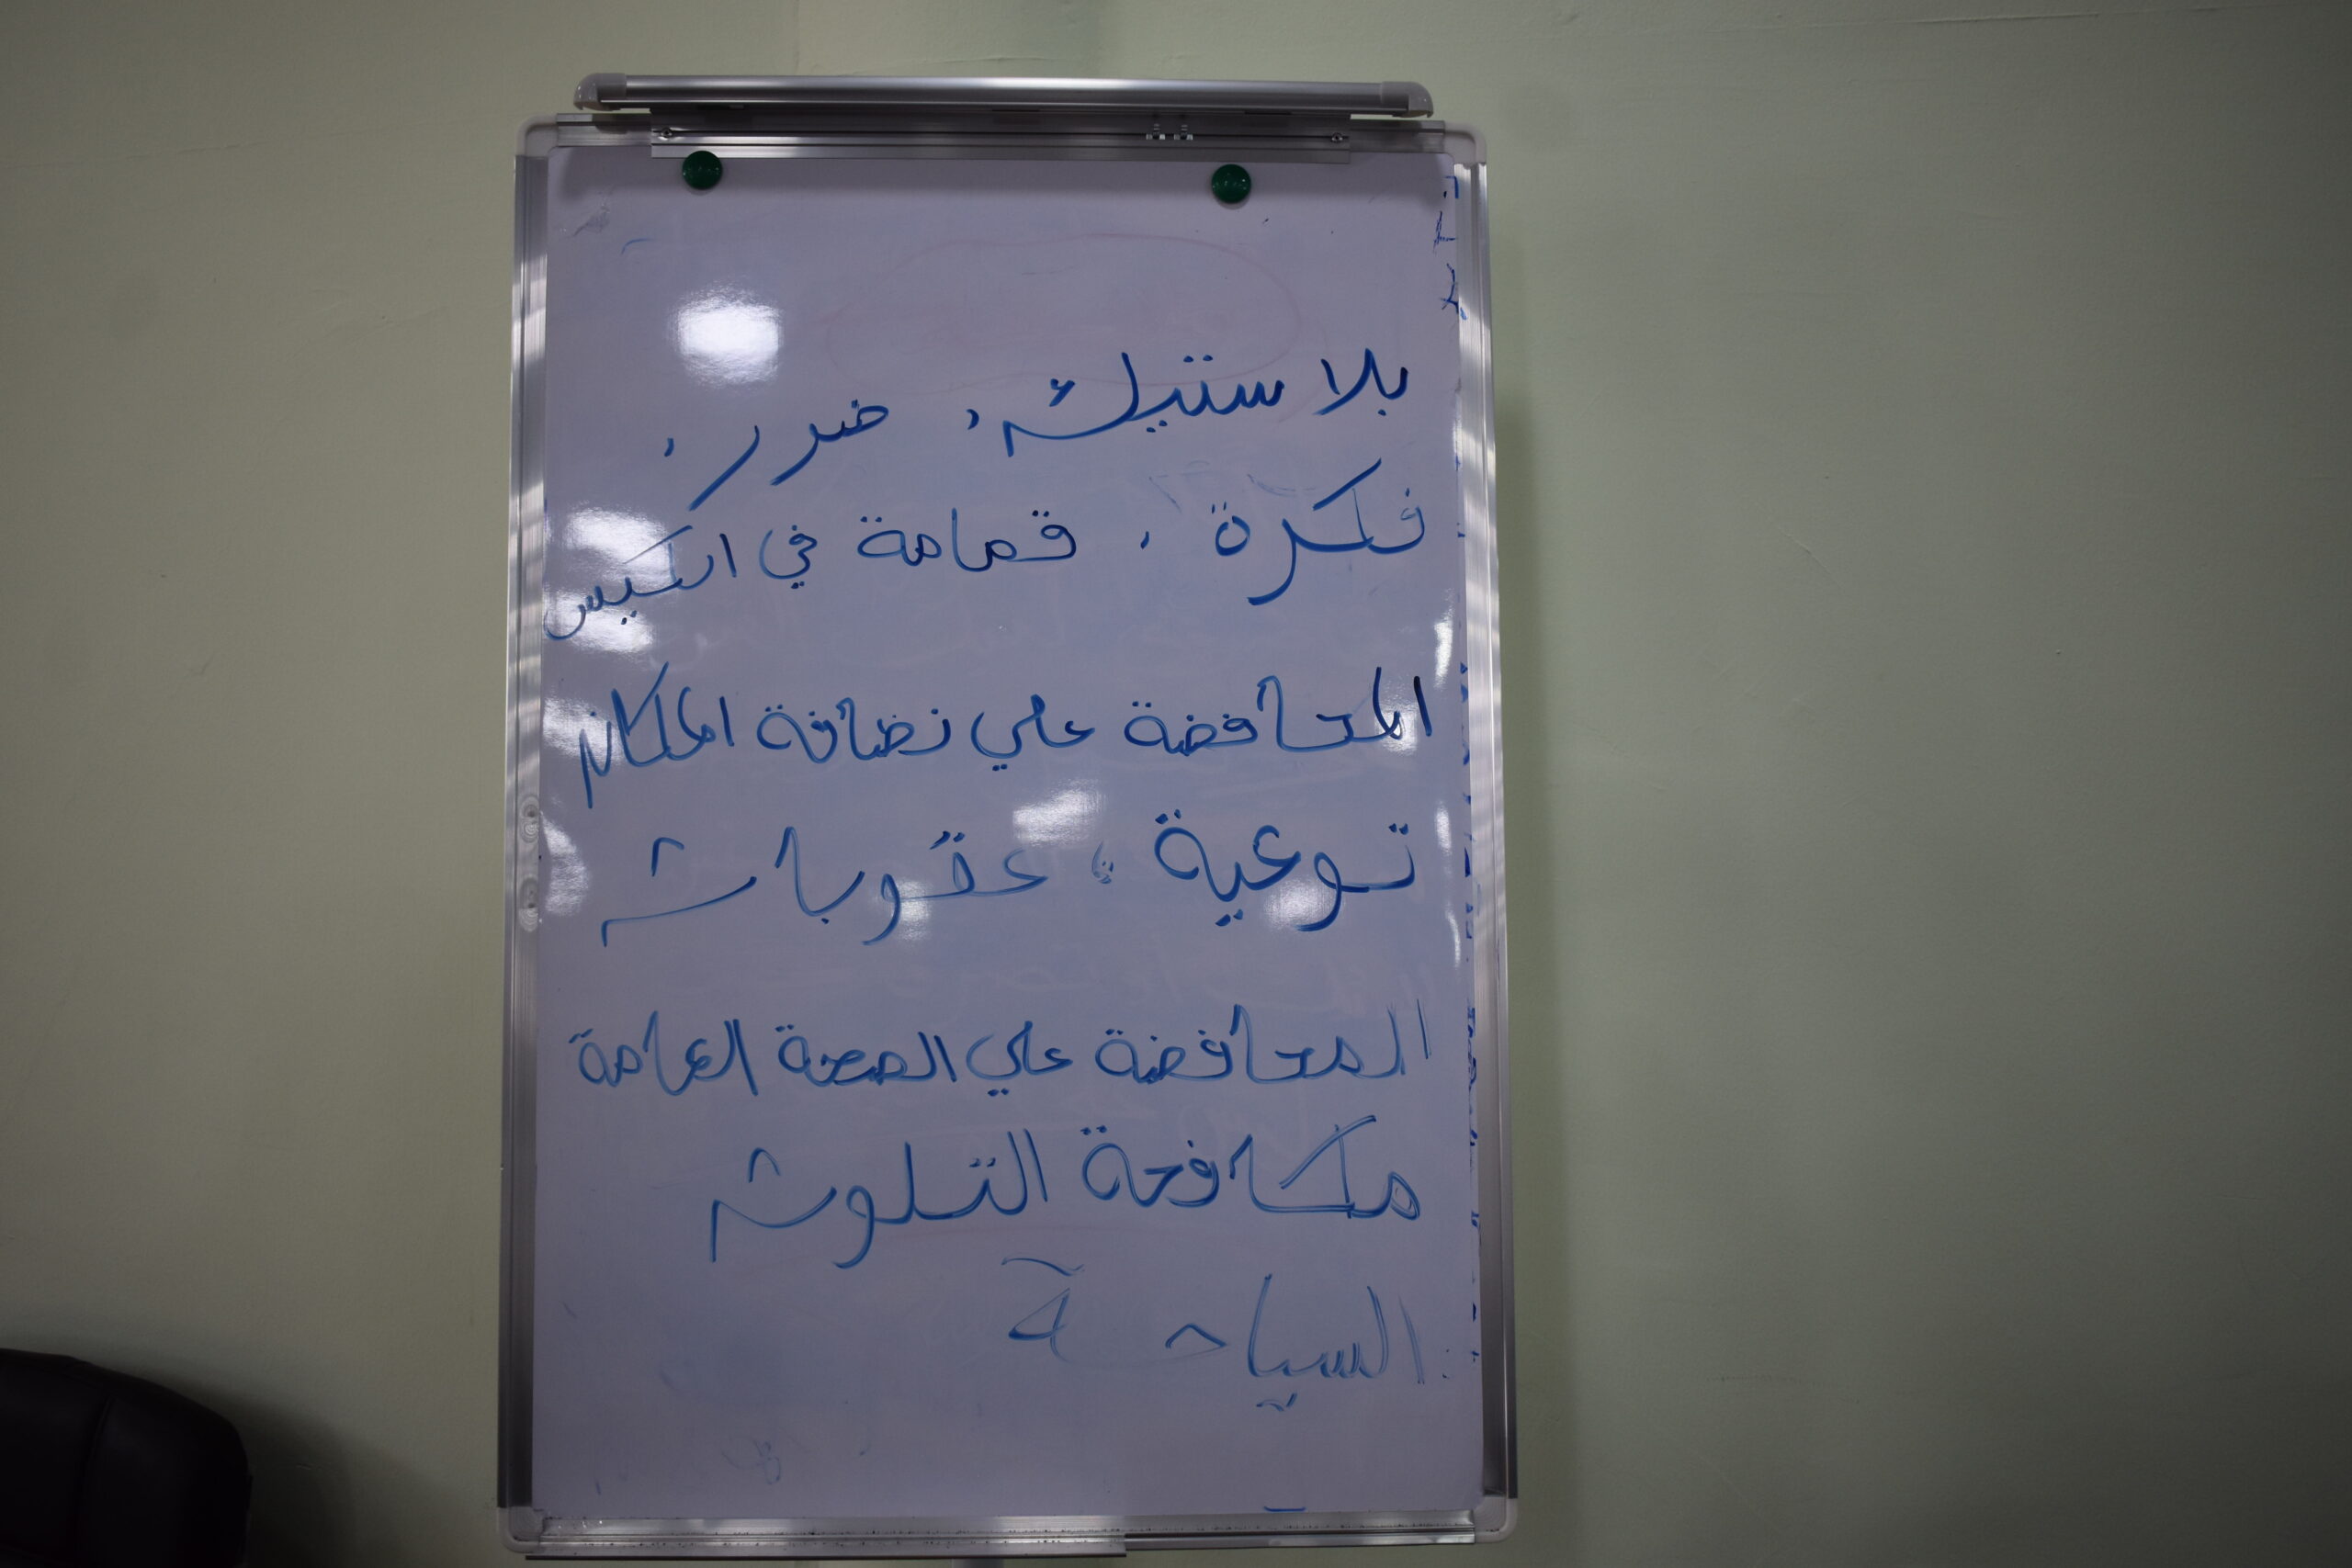 بلاستيك ، ضرر ،
فكرة ، قمامة في الكيس
المحافضة علي نضافة المكان
توعية ، عقوبات
المحافضة علي الصحة العامة
مكافحة التلوث
السياحة